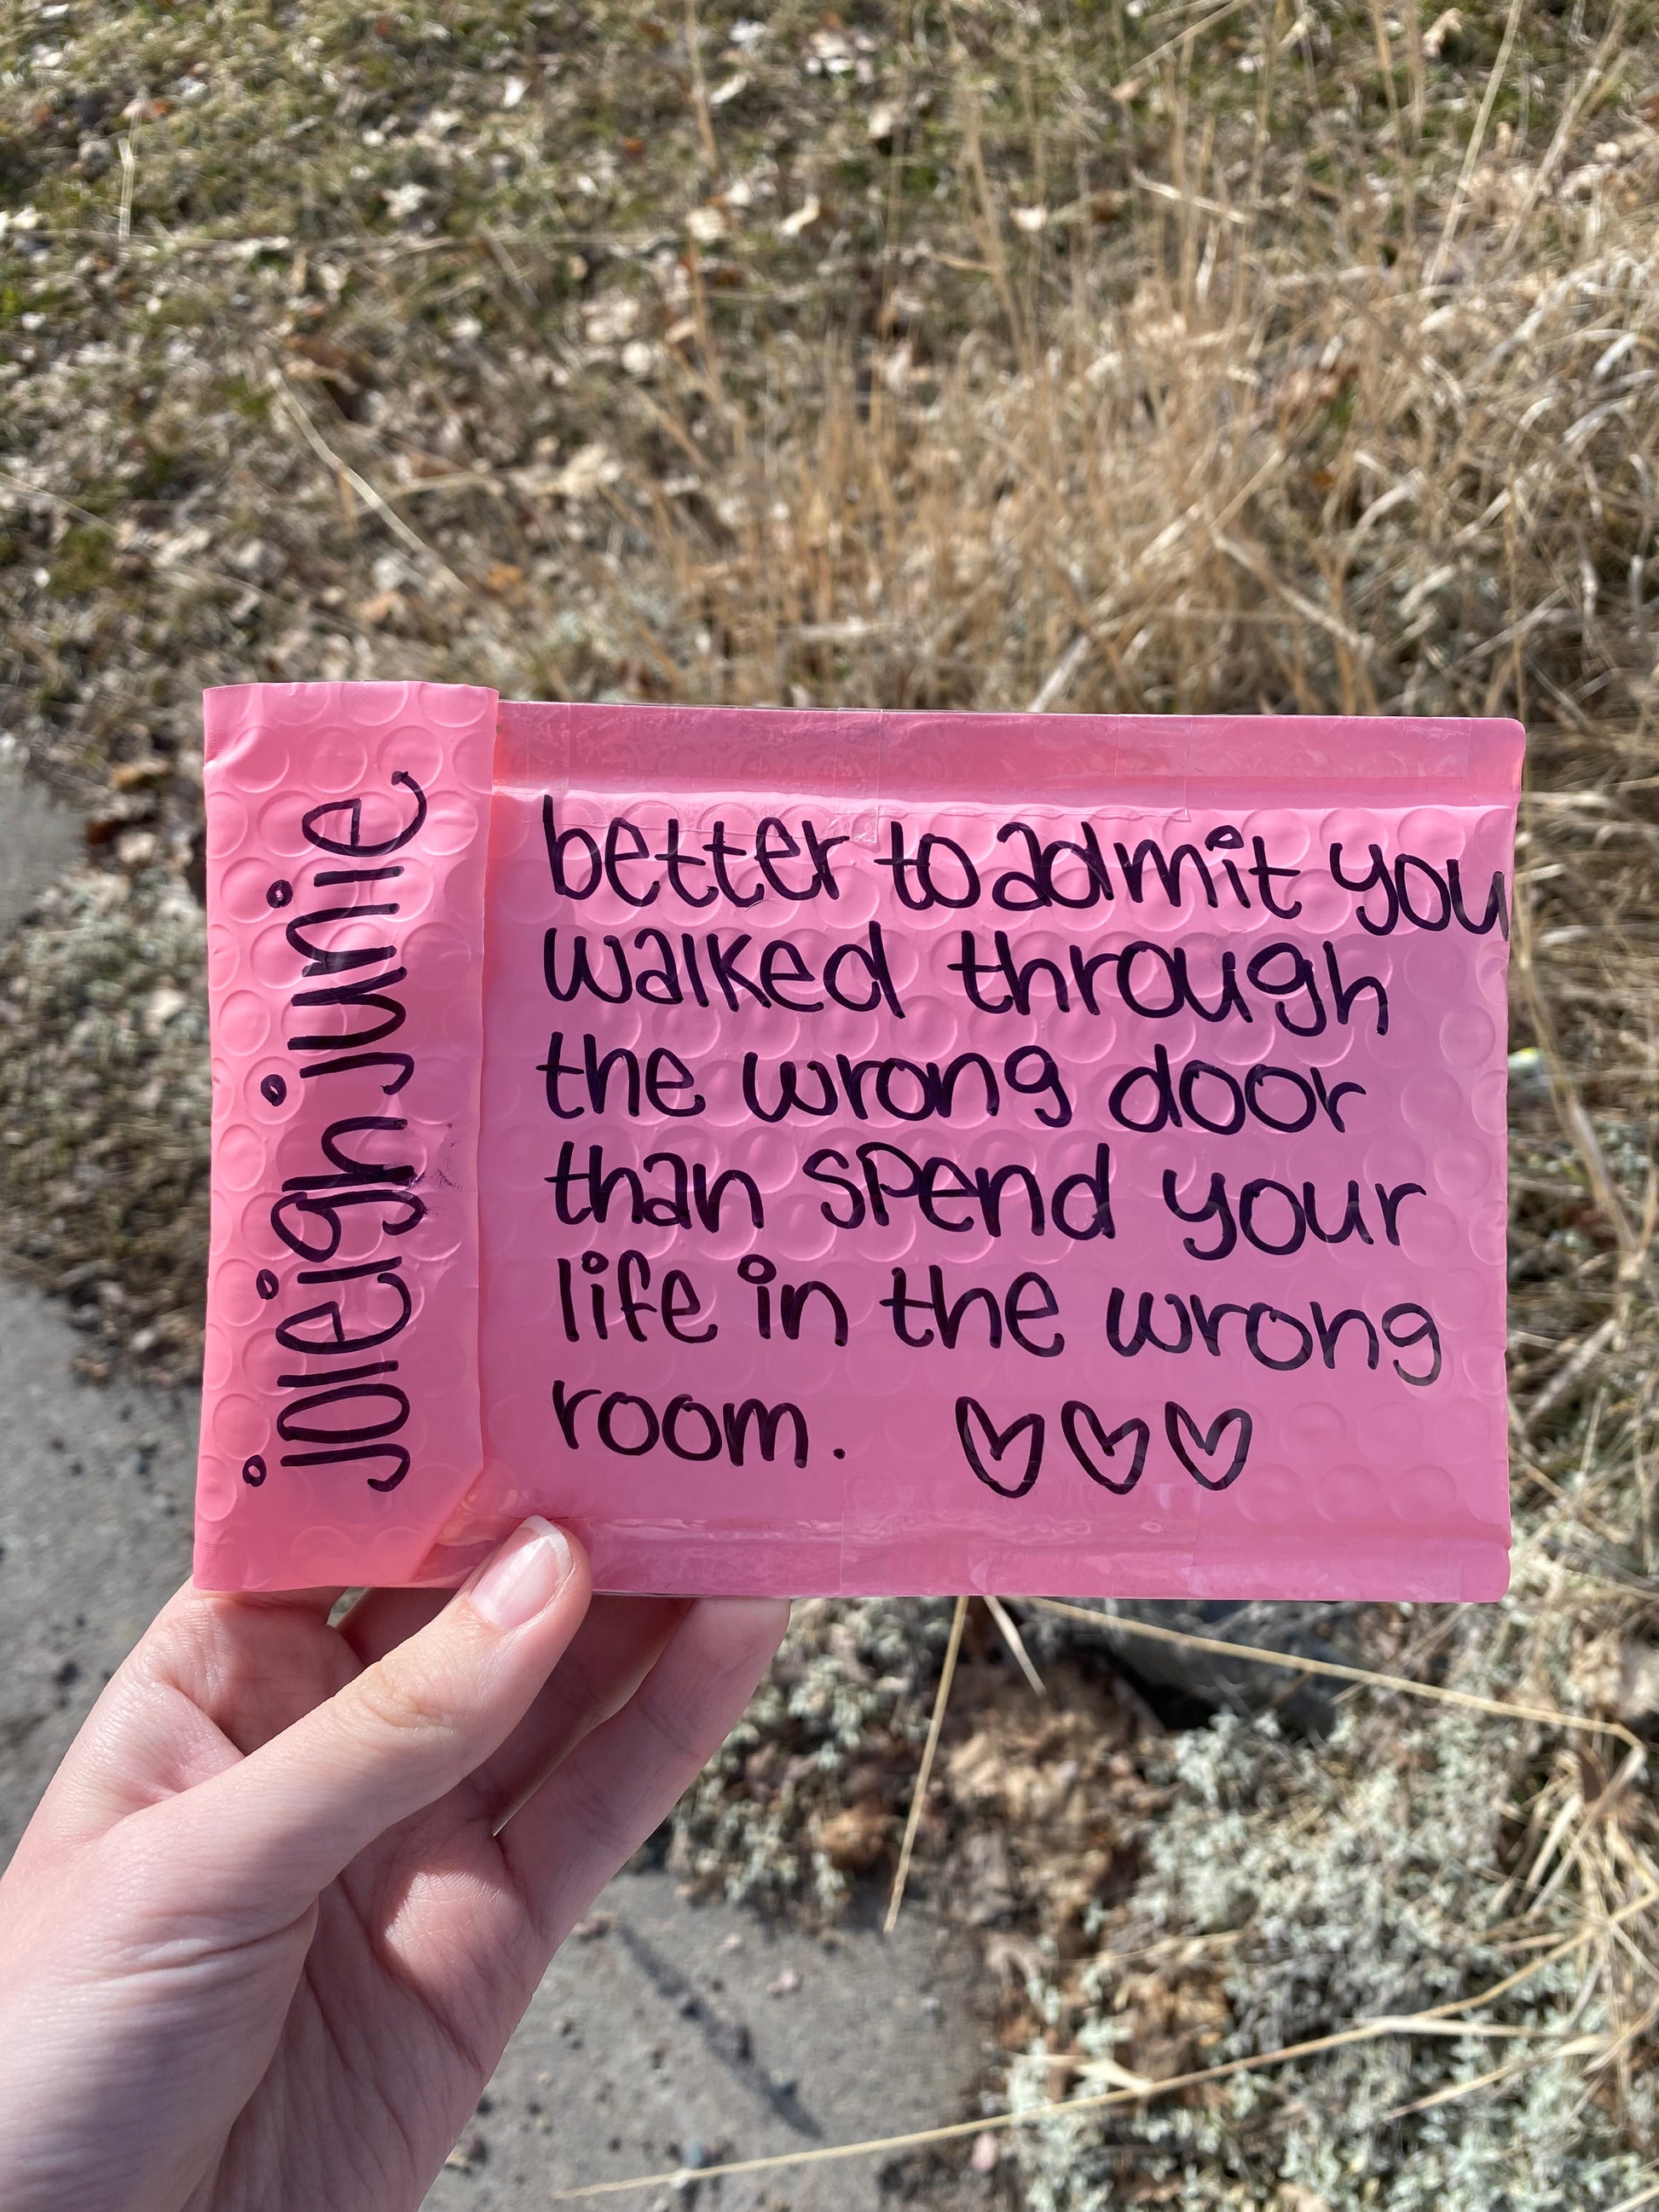 joleigh junie
better to admit you
walked through
the wrong door
than spend your
life in the wrong
room. ♡♡♡